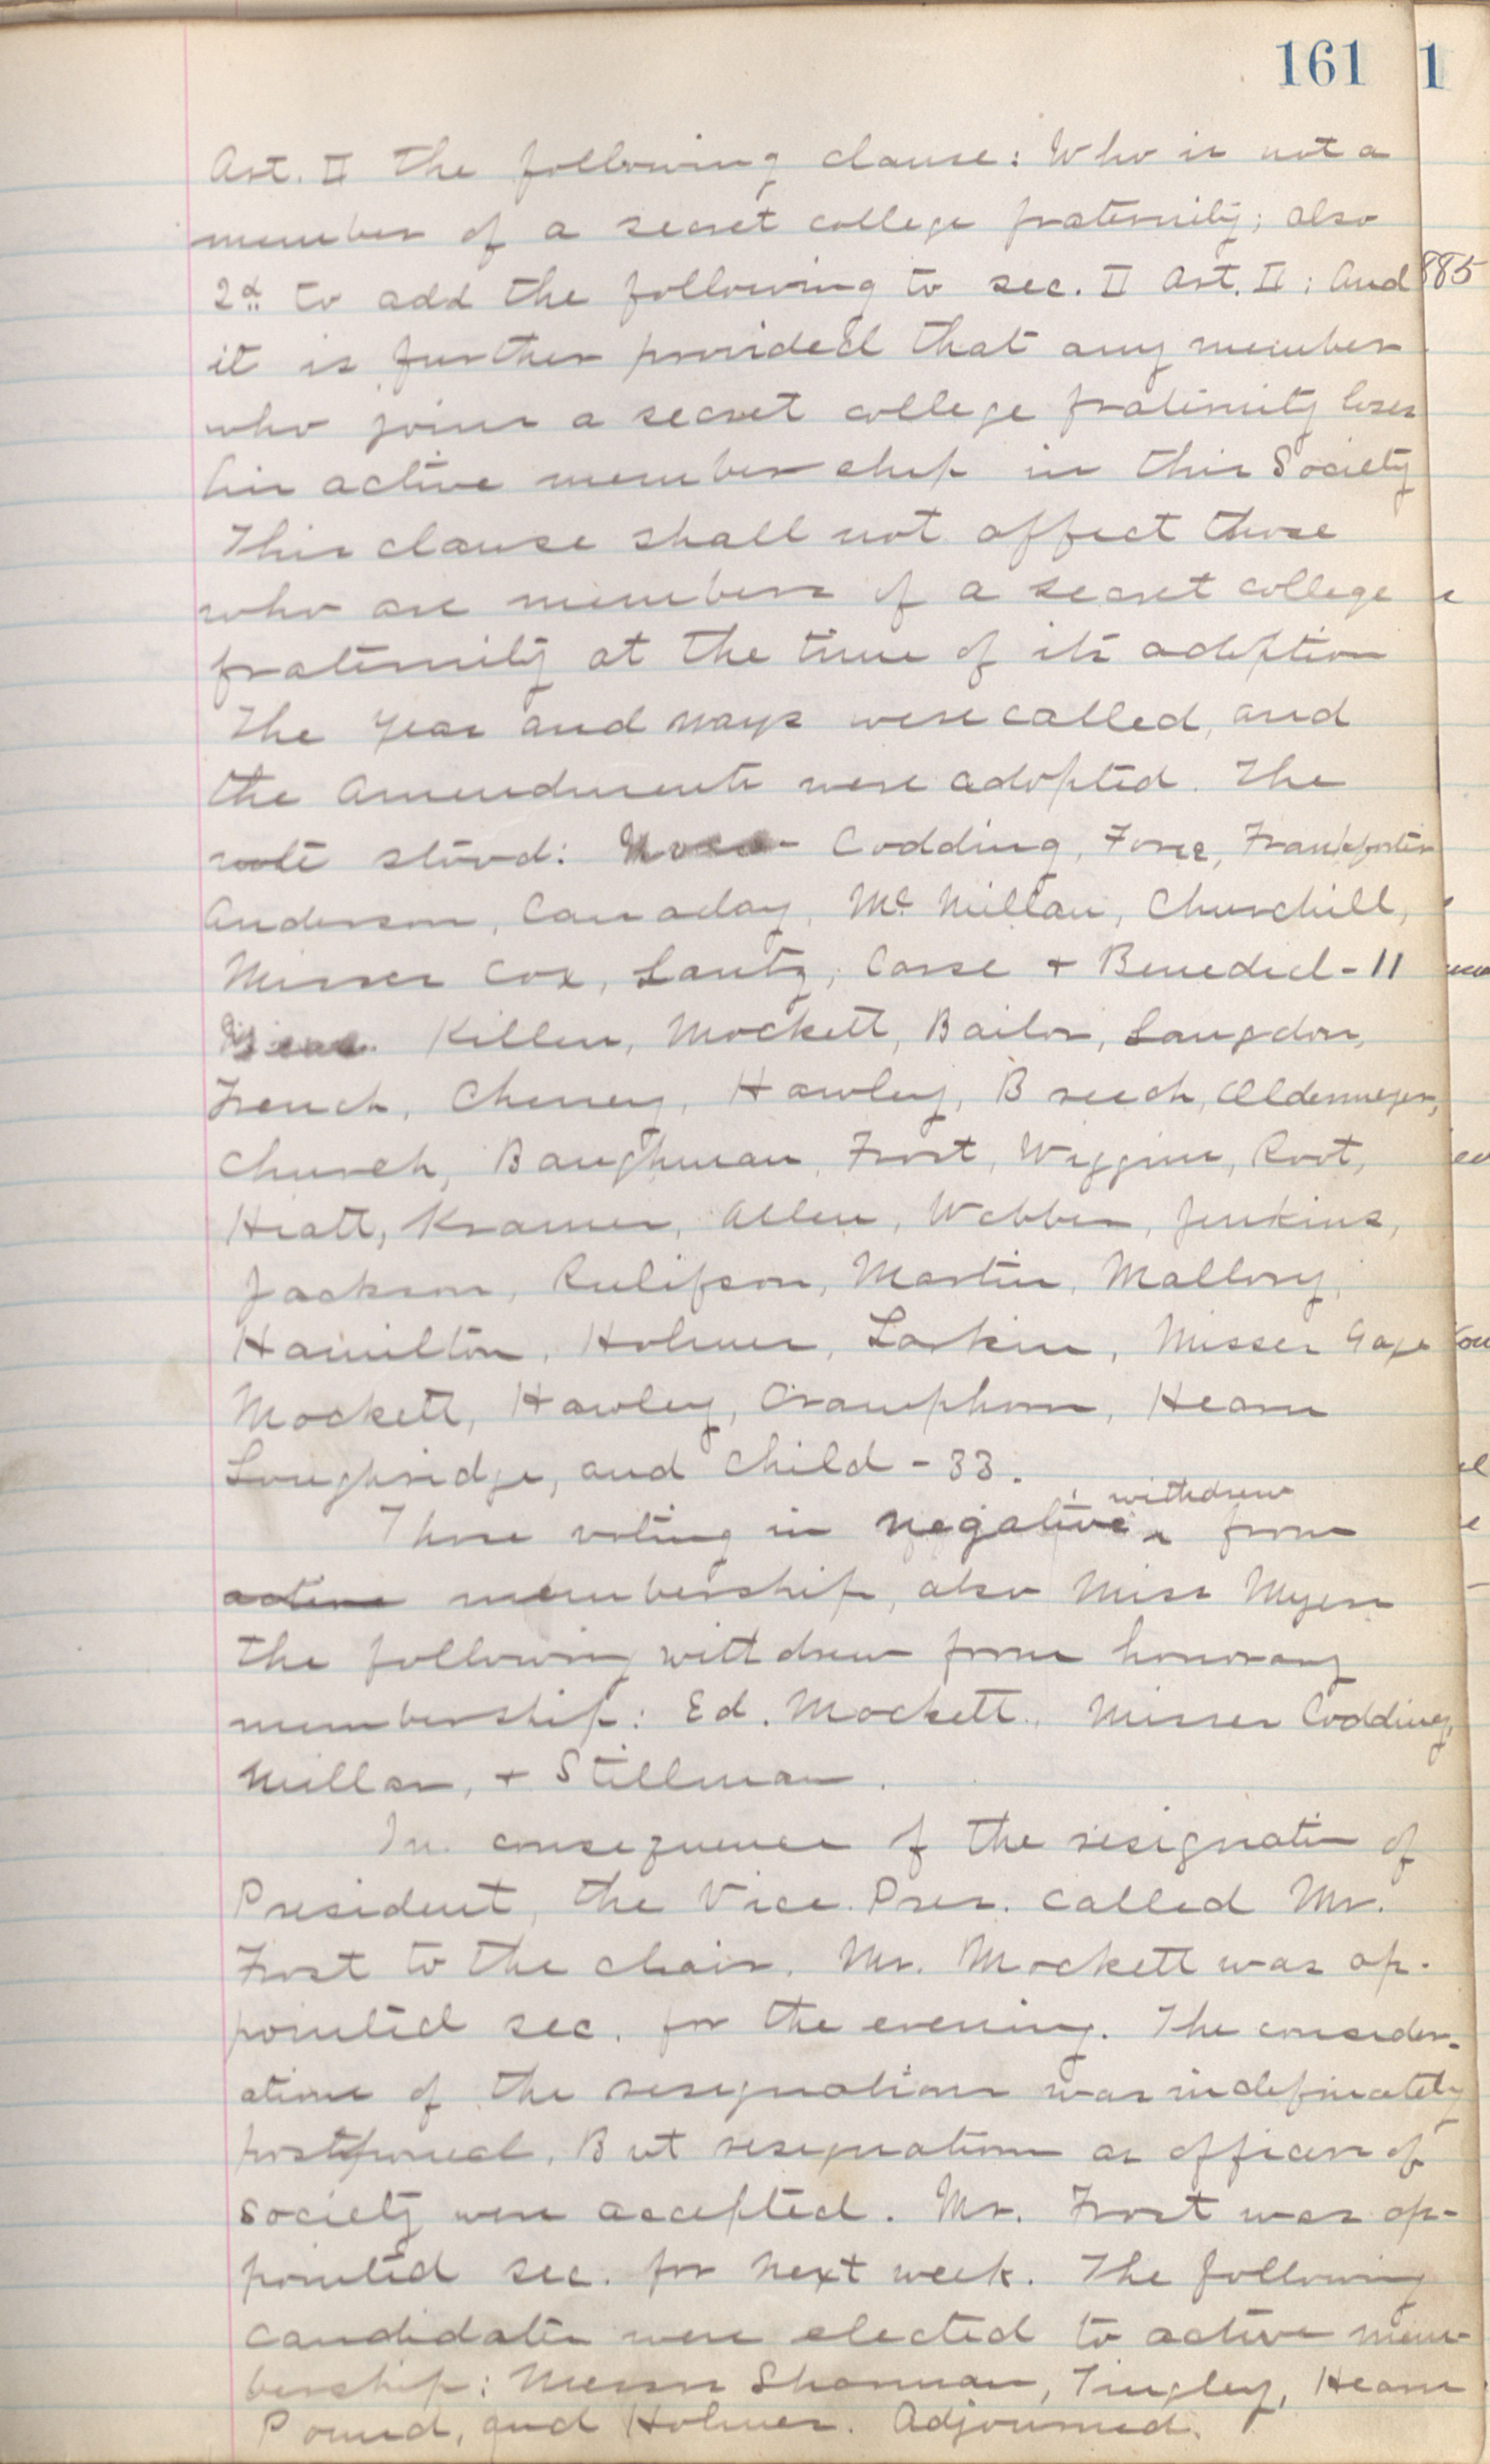 161
Art. II the following clause: Who is not a
member of a secret college fraternity; also
2d to add the following to sec. II Art. II: And
it is further provided that any member
who joins a secret college fraternity loses
his active membership in this Society
This clause shall not affect those
who are members of a secret college
fraternity at the time of its adoption
The yeas and nays were called, and
the amendments were adopted. The
vote stood: Noes - Codding, Foree, Frankforter
Anderson, Canaday, Mc Millan, Churchill,
Misses Cox, Lantz, Casse + Benedict - 11
Yeas. Killen, Mockett, Bailor, Langdon,
French, Cheney, Hawley, Breech, Aldermeyer,
Church, Baughman, Frost, Wiggins, Root,
Hiatt, Kramer, Allen, Webber, Jenkins,
Jackson, Rulifson, Martin, Mallory,
Hamilton, Holmes, Larkin, Misses Gage
Mockett, Hawley, Hearn
Loughridge, and Child - 33.
Those voting in negative withdrew from
active membership, also Miss Myers
the following withdrew from honorary
membership: Ed. Mockett, Misses Codding,
Millar, + Stillman.
In consequence of the resignation of
President, the Vice. Pres. called Mr.
Frost to the chair. Mr. Mockett was ap-
pointed sec. for the evening. The consider-
ations of the resignations was indefinately
postponed. But resignations as officers of
society were accepted. Mr. Frost was ap-
pointed sec. for next week. The following
candidates were elected to active mem-
bership: Messrs Sharman, Tingley, Hearn
Pound, and Holmes. Adjourned.
1
885